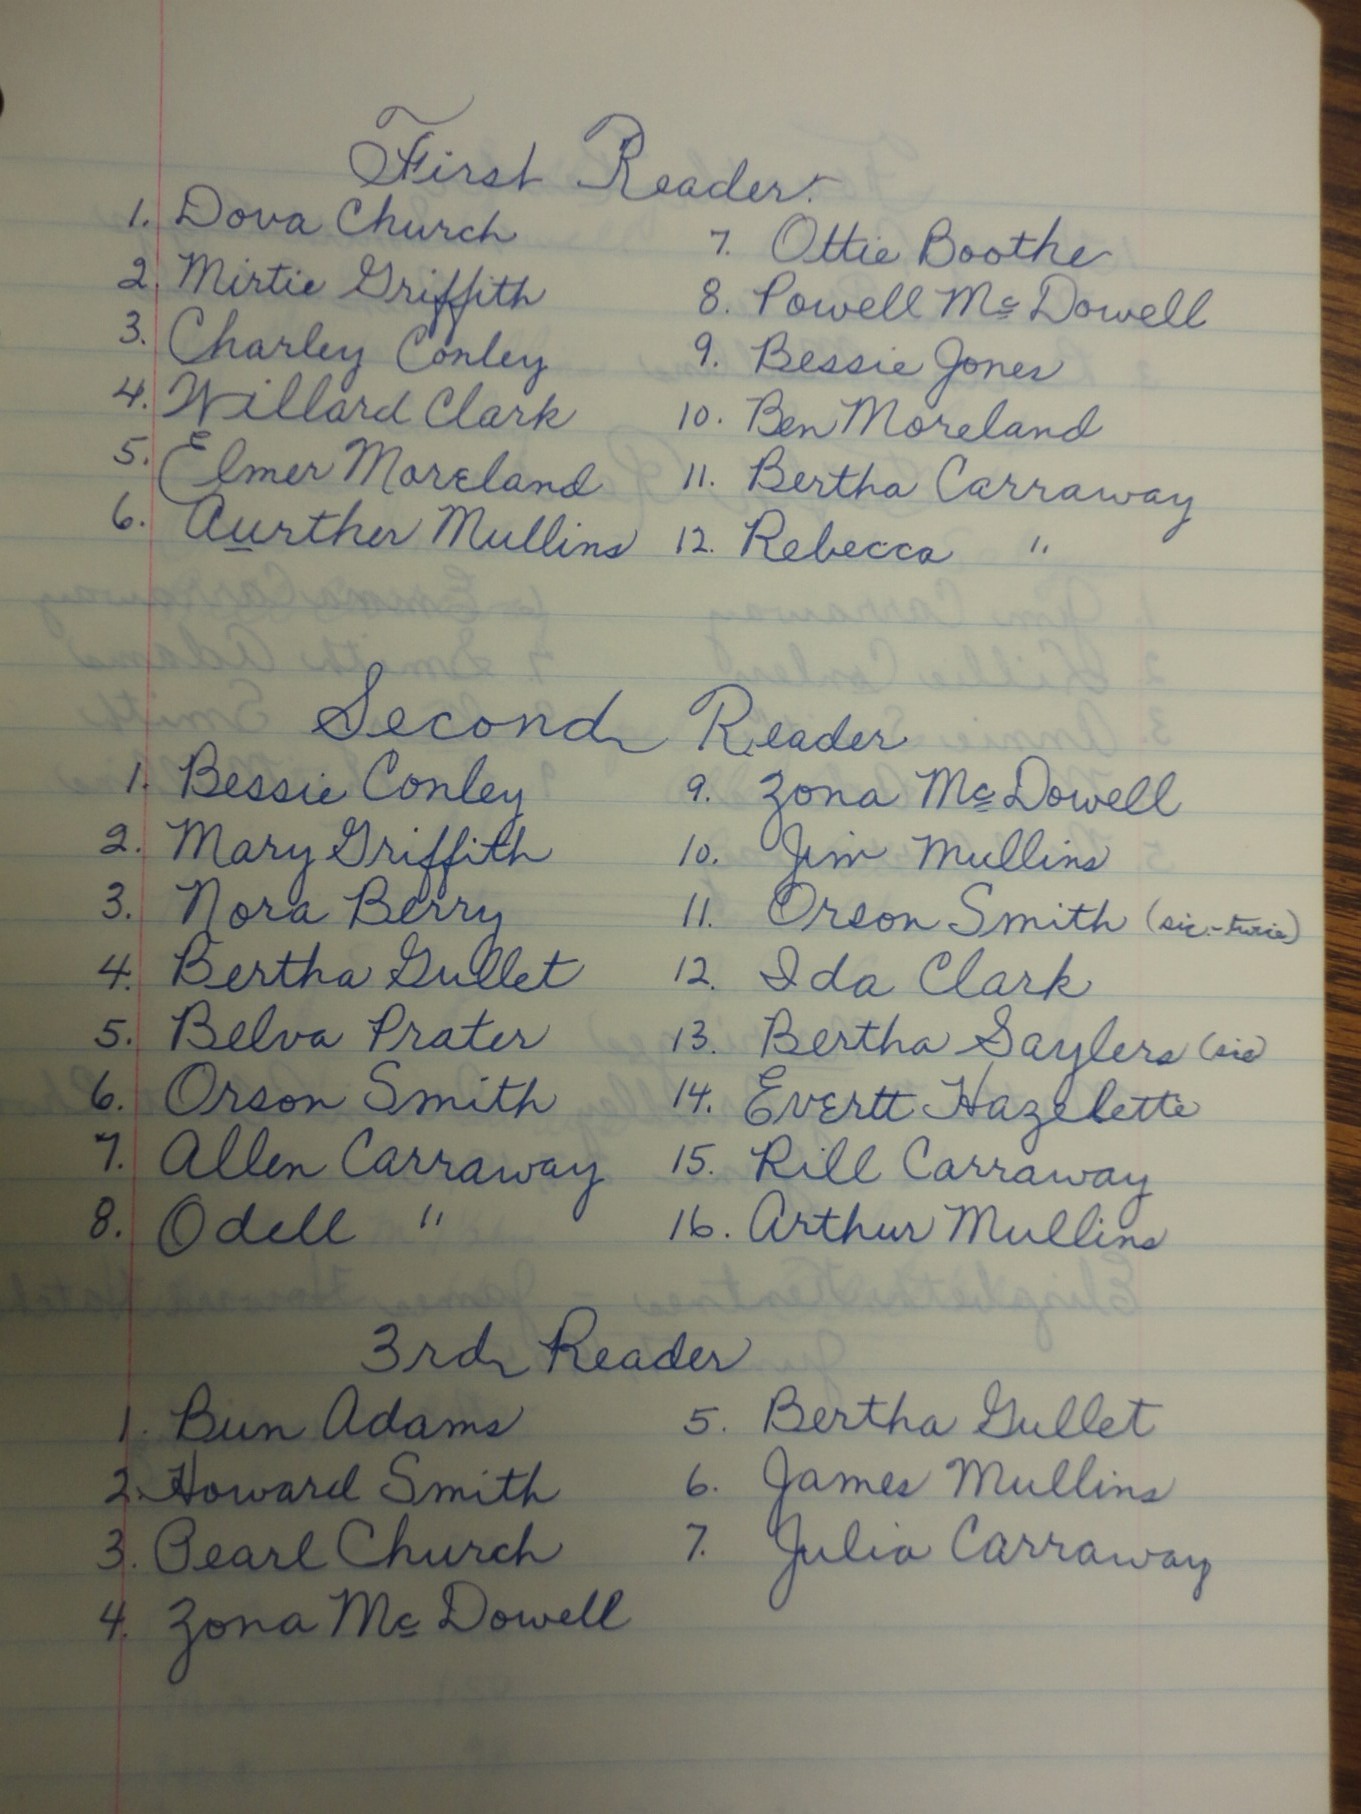 First Reader
1. Dova Church
2. Mirtie Griffith
3. Charley Conley
4. Willard Clark
5. Elmer Moreland
6. Aurther Mullins
7. Ottie Boothe
8. Powell McDowell
9. Bessie Jones
10. Ben Moreland
11. Bertha Carraway
12. Rebecca "
Second Reader
1. Bessie Conley
2. Mary Griffith
3. Nora Berry
4. Bertha Gullet
5. Belva Prater
6. Orson Smith
7. Allen Carraway
8. Odell "
9. Zona McDowell
10. Jim Mullins
11. Orson Smith (sic.-twice)
12. Ida Clark
13. Bertha Saylers (sic)
14. Evertt Hazelette
15. Rill Carraway
16. Arthur Mullins
3rd Reader
1. Bun Adams
2. Howard Smith
3. Pearl Church
4. Zona McDowell
5. Bertha Gullet
6. James Mullins
7. Julia Carraway